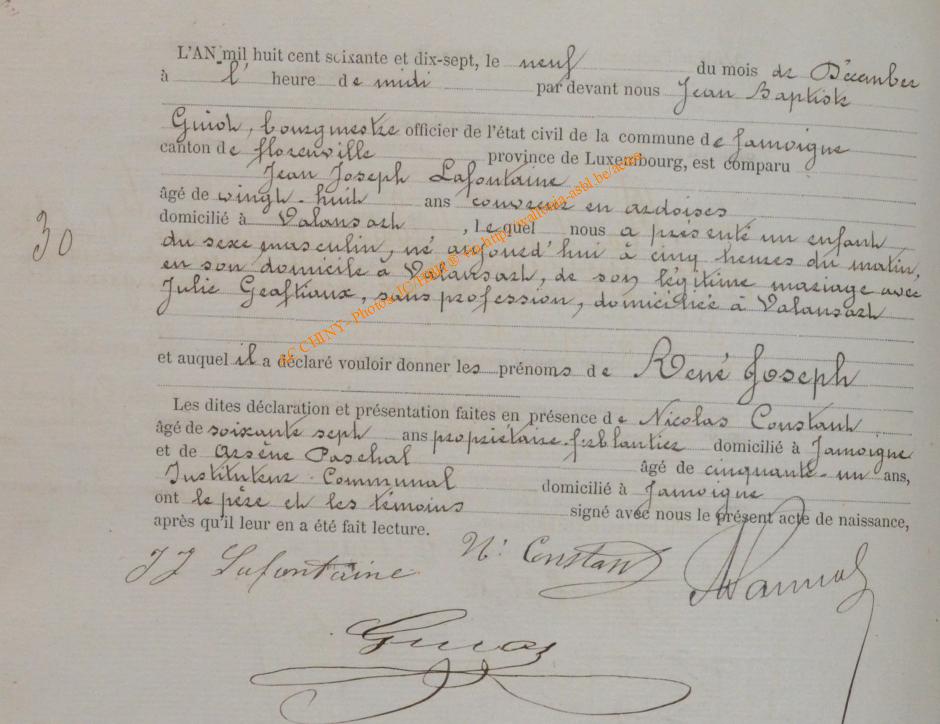 L'AN mil huit cent soixante et dix-sept, le neuf du mois de Décember
à l' heure de midi par devant nous Jean Baptiste
Guiot, bourgmestre officier de l'état civil de la commune de Jamoigne
canton de florenville province de Luxembourg, est comparu
Jean Joseph Lafontaine
âgé de vingt-huit ans couvreur en ardoises
domicilié à Valansart, lequel nous a présenté un enfant
30
du sexe masculin, né aujourd'hui à cinq heures du matin,
en son domicile à Valansart, de son légitime mariage avec
Julie Geaftiaux, sans profession, domiciliée à Valansart
et auquel il a déclaré vouloir donner les prénoms de René Joseph
Les dites déclaration et présentation faites en présence de Nicolas Constant
âgé de soixante sept ans propriétaire-ferblantier domicilié à Jamoigne
et de Arsène Paschal âgé de cinquante-un ans,
Instituteur Communal domicilié à Jamoigne
ont le père et les témoins signé avec nous le présent acte de naissance,
après qu'il leur en a été fait lecture.
JJ Lafontaine N. Constant
Guiot